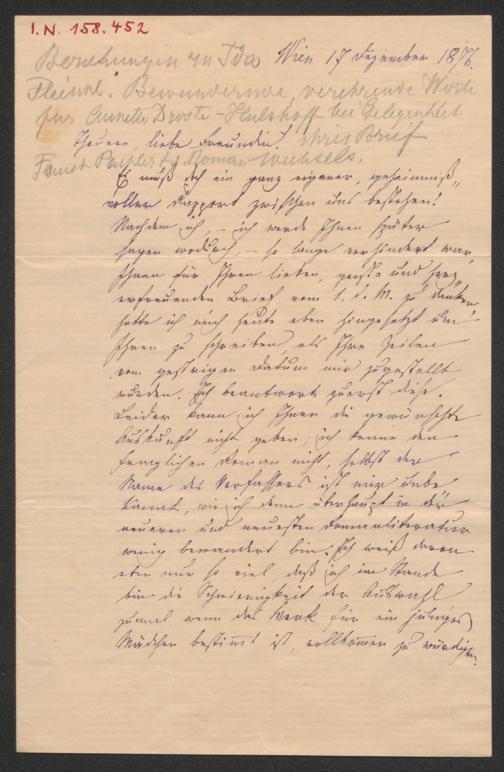 I.N. 158.452
Beziehungen zu Ida
Wien 17 Dezember 1876.
Fleischl. Bewundernde, verehrende Worte
für Annette Droste-Hülshoff bei Gelegenheit
ihres Brief
Theuere, liebe Freundin!
Wechsels.
Es muß doch ein ganz eigener, geheimniß-
voller Rapport zwischen uns bestehen!
Nachdem ich, – ich werde Ihnen später
sagen wodurch, – so lange verhindert war,
Ihnen für Ihren lieben, geist- und herz-
erfreuenden Brief vom 1. d. M. zu danken,
hatte ich mich heute eben hingesetzt um
Ihnen zu schreiben, als Ihre Zeilen
vom gestrigen Datum mir zugestellt
wurden. Ich beantworte zuerst diese.
Leider kann ich Ihnen die gewünschte
Auskunft nicht geben, ich kenne den
fraglichen Roman nicht, selbst der
Name des Verfassers ist mir unbe-
kannt, wie ich denn überhaupt in der
neueren und neuesten Romanliteratur
wenig bewandert bin. Ich weiß davon
eben nur so viel, daß ich im Stande
bin die Schwierigkeit der Auswahl
zumal wenn das Werk für ein junges
Mädchen bestimmt ist, vollkommen zu würdigen.